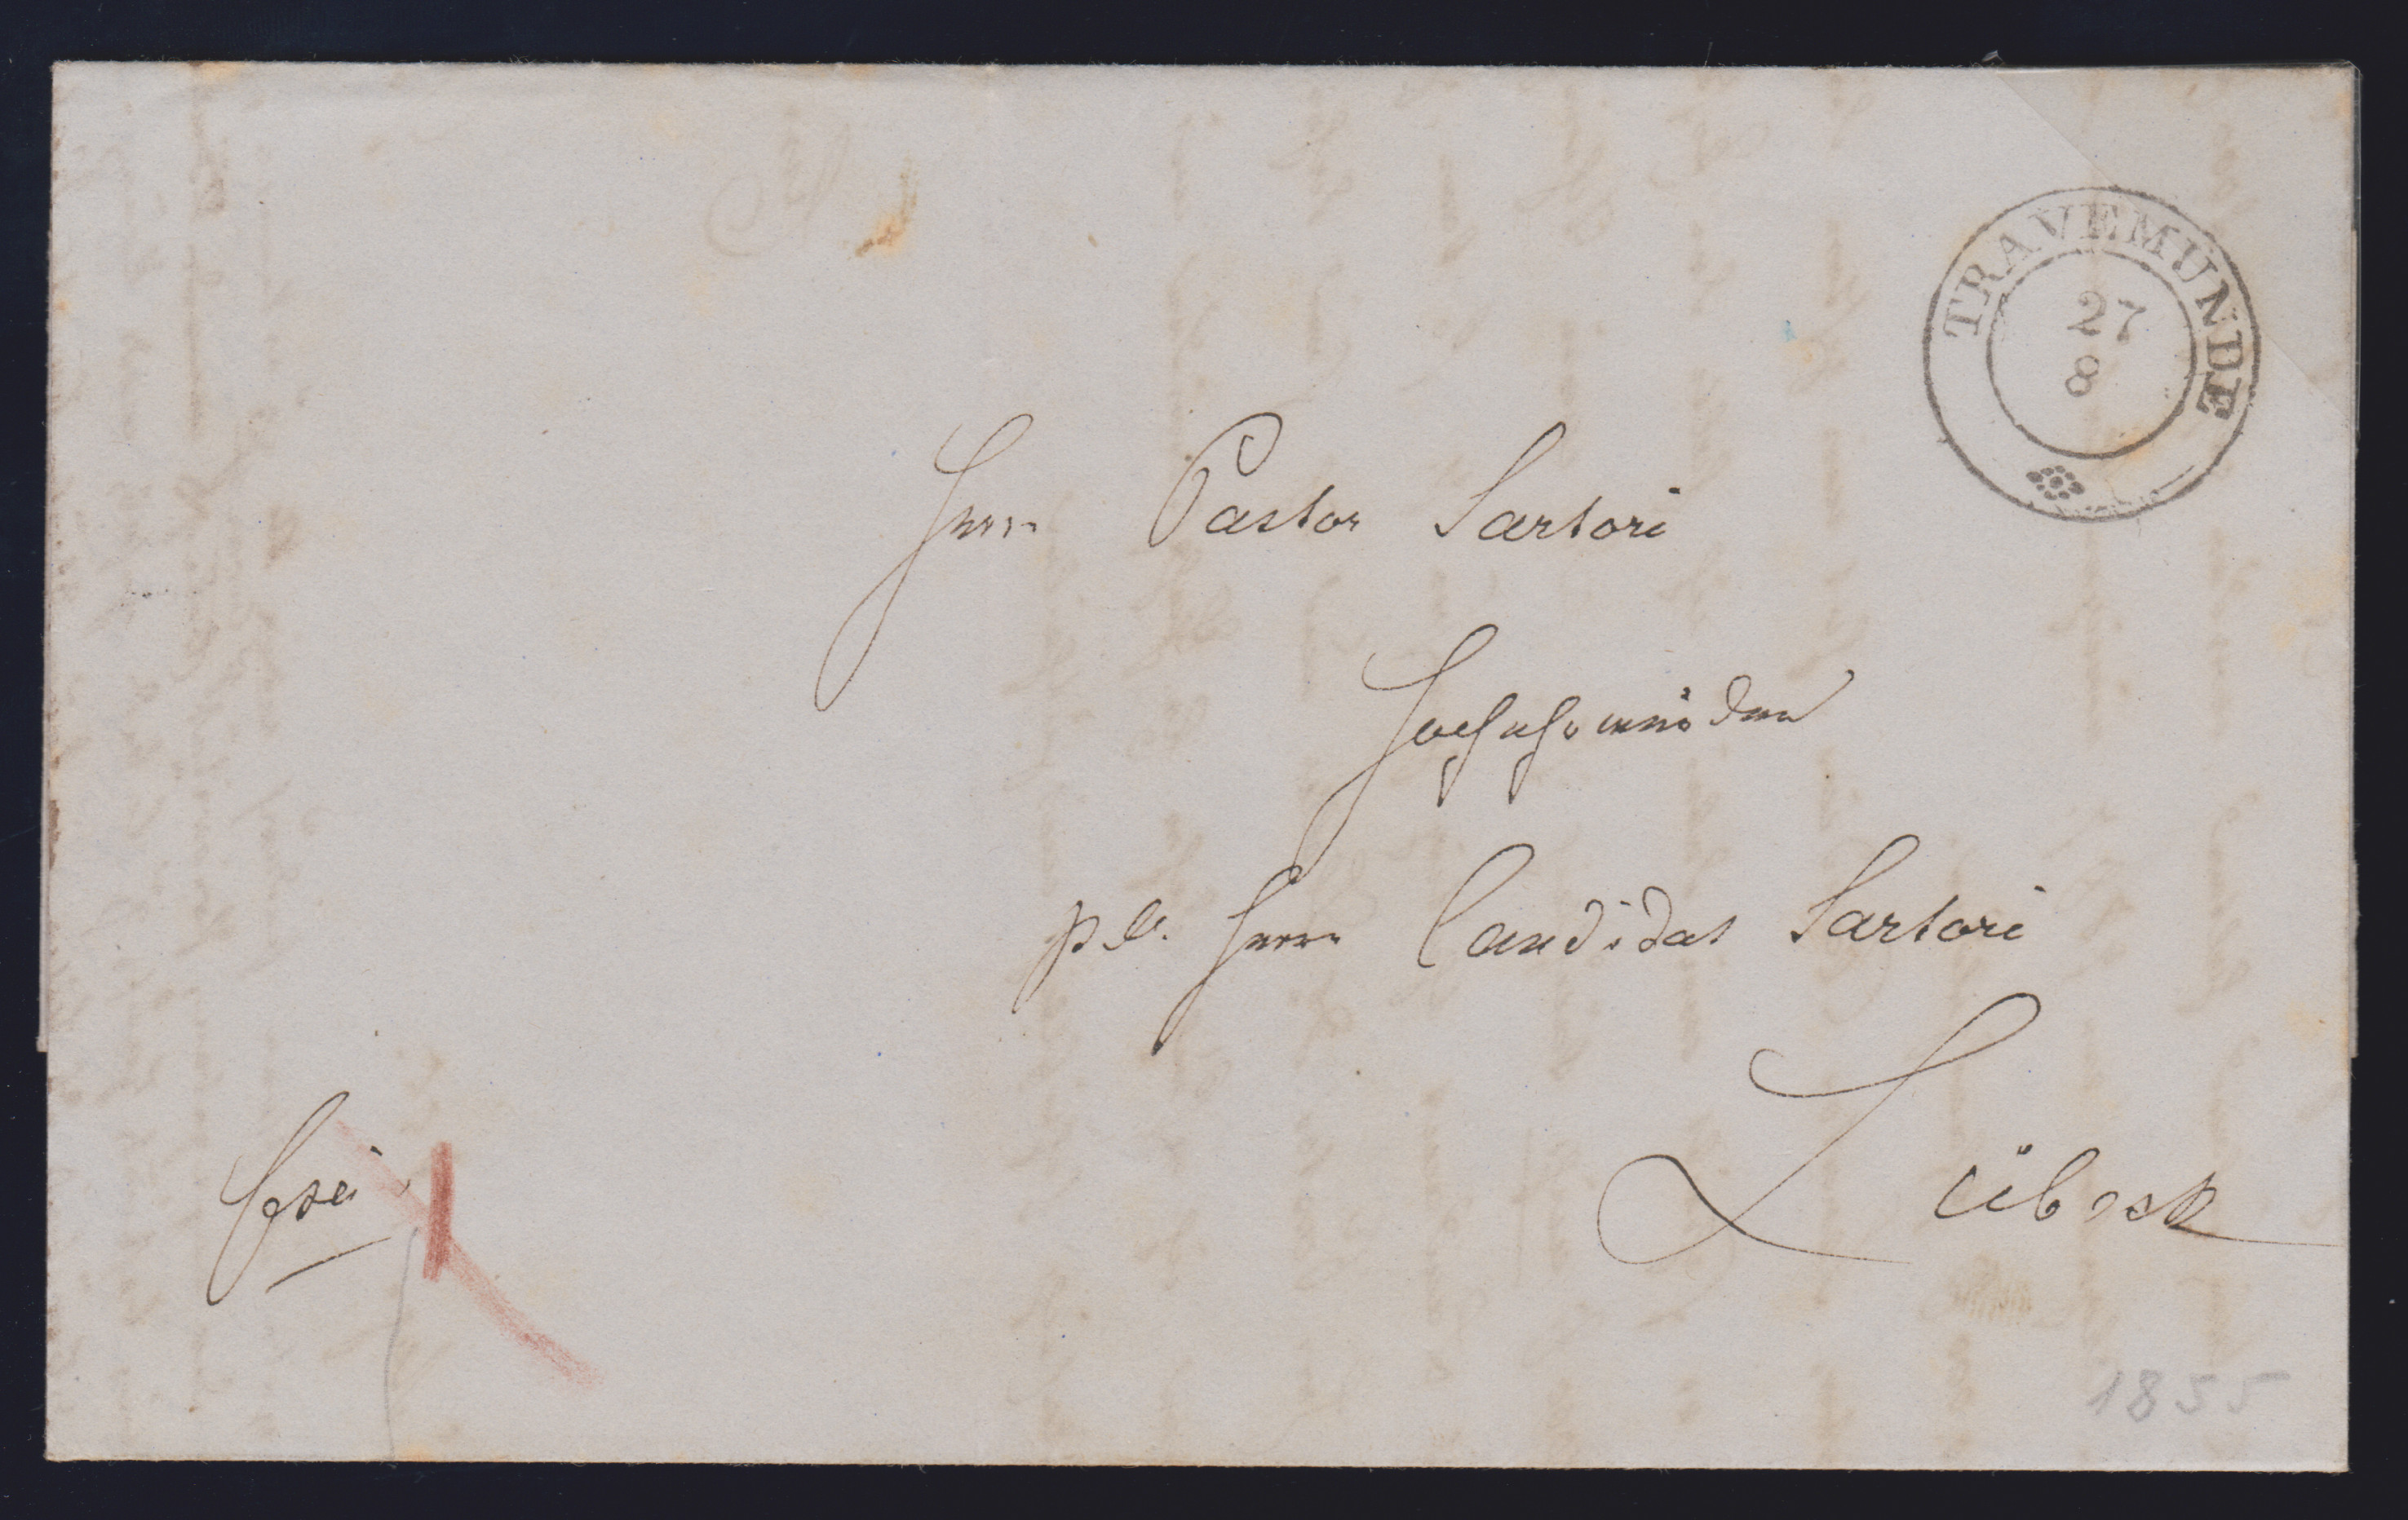 TRAVEMUNDE
27
8
Herrn Pastor Sartori
Hochehrwürden
p. Herrn Candidat Sartori
Lübeck
frei
1855